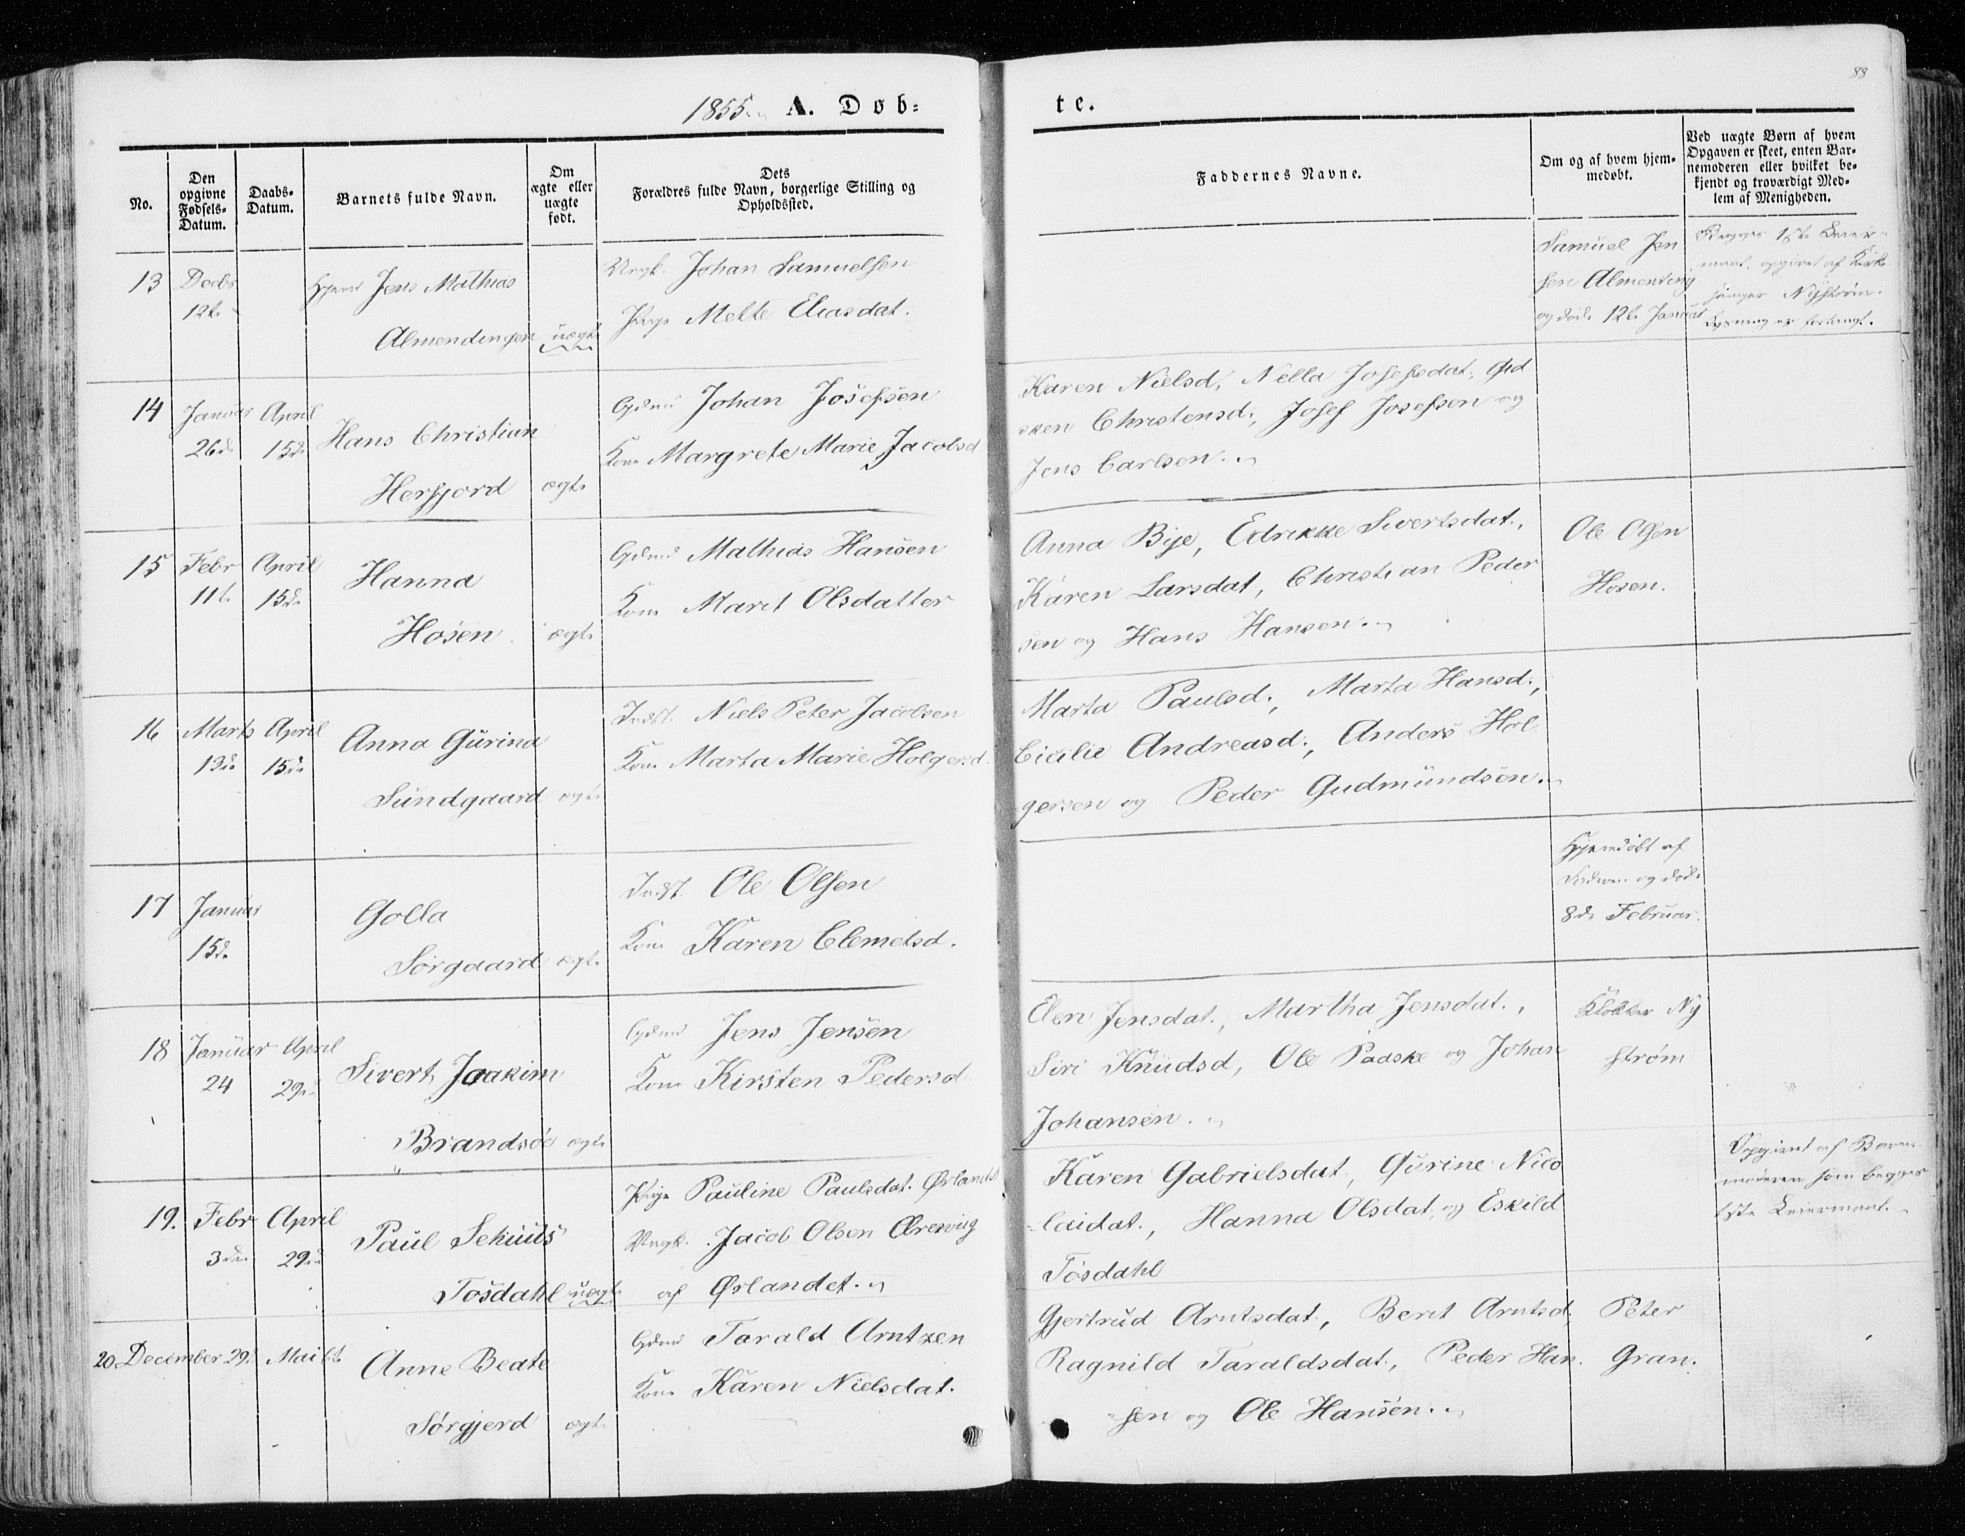 88
1855. A. Døb-
te.
No.
Den opgivne Fødsels-Datum.
Daabs-Datum.
Barnets fulde Navn.
Om ægte eller uægte født.
Dets Forældres fulde Navn, borgerlige Stilling og Opholdssted.
Faddernes Navne.
Om og af hvem hjem-medøbt.
Ved uægte Børn af hvem Opgaven er skeet, enten Bar-nemoderen eller hvilket be-kjendt og troværdigt Med-lem af Menigheden.
13
Decbr
12te
Jens Mathias
Almendingen uægte
Ungk. Johan Samuelsen
Pige Mette Eliasdat.
Samuel Jen
sen Almending
og døde 12te Januar
Begges 1ste Leier-
maal, opgivet af Kirke
sanger Nystrøm.
14
Januar April
26de 15de
Hans Christian
Herfjord ægte
Gdmd Johan Josefsen
Kone Margrete Marie Jacobsd.
Karen Nielsd, Nella Josefsdat.,
Christensd., Josef Josefsen og
Jens Carlsen.
15
Febr April
11te 15de
Hanna
Hosen ægte
Gdmd Mathias Hansen
Kone Marit Olsdatter
Anna Bye, Edrikke Sivertsdat.,
Karen Larsdat, Christian Peder
sen og Hans Hansen.
Ole Olsen
Hosen.
16
Marts April
13de 15de
Anna Gurina
Sundgaard ægte
Indst. Niels Peter Jacobsen
Kone Marta Marie Holgersd.
Marta Paulsd., Marta Hansd.,
Cicilie Andreasd., Anders Hol
gersen og Peder Gudmundsen.
17
Januar
15de
Golla
Sørgaard ægte
Indst. Ole Olsen
Kone Karen Clemetsd.
Hjemdøbt af
og døde
8de Februar.
18
Januar April
24 29de
Sivert Joakim
Brandsøe ægte
Gdmd Jens Jensen
Kone Kirsten Pedersd
Elen Jensdat., Martha Jensdat.,
Siri Knudsd, Ole Paaske og Johan
Johansen.
Klokker Ny
strøm
19.
Febr April
3die 29de
Paul
Tøsdahl uægte
Pige Pauline Paulsdat. Ørlandet
Ungk. Jacob Olsen
af Ørlandet.
Karen Gabrielsdat, Gurine Nico
laidat., Hanna Olsdat, og Eskild
Tøsdahl
Opgivet af Barne
moderen som begges
1ste Leiermaal.
20. December 29de Mai 6te
Anne Beate
Sørgjerd ægte
Gdmd Tarald Arntzen
Kone Karen Nielsdat.
Gjertrud Arntsdat., Berit Arntsd.
Ragnild Taraldsdat., Peder Han
sen og Ole Hansen.
Peter
Gran.